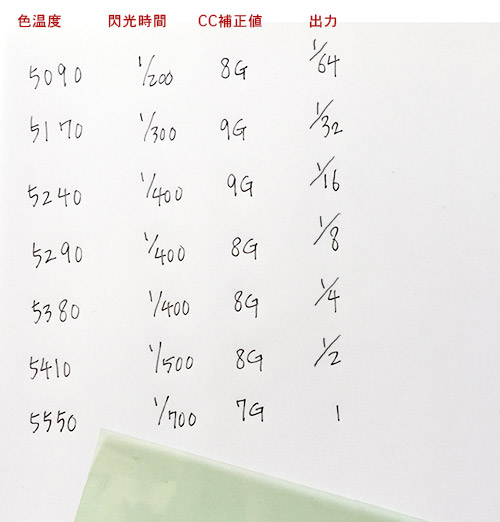 色温度 閃光時間 CC補正値 出力
5090 1/200 8G 1/64
5170 1/300 9G 1/32
5240 1/400 9G 1/16
5290 1/400 8G 1/8
5380 1/400 8G 1/4
5410 1/500 8G 1/2
5550 1/700 7G 1